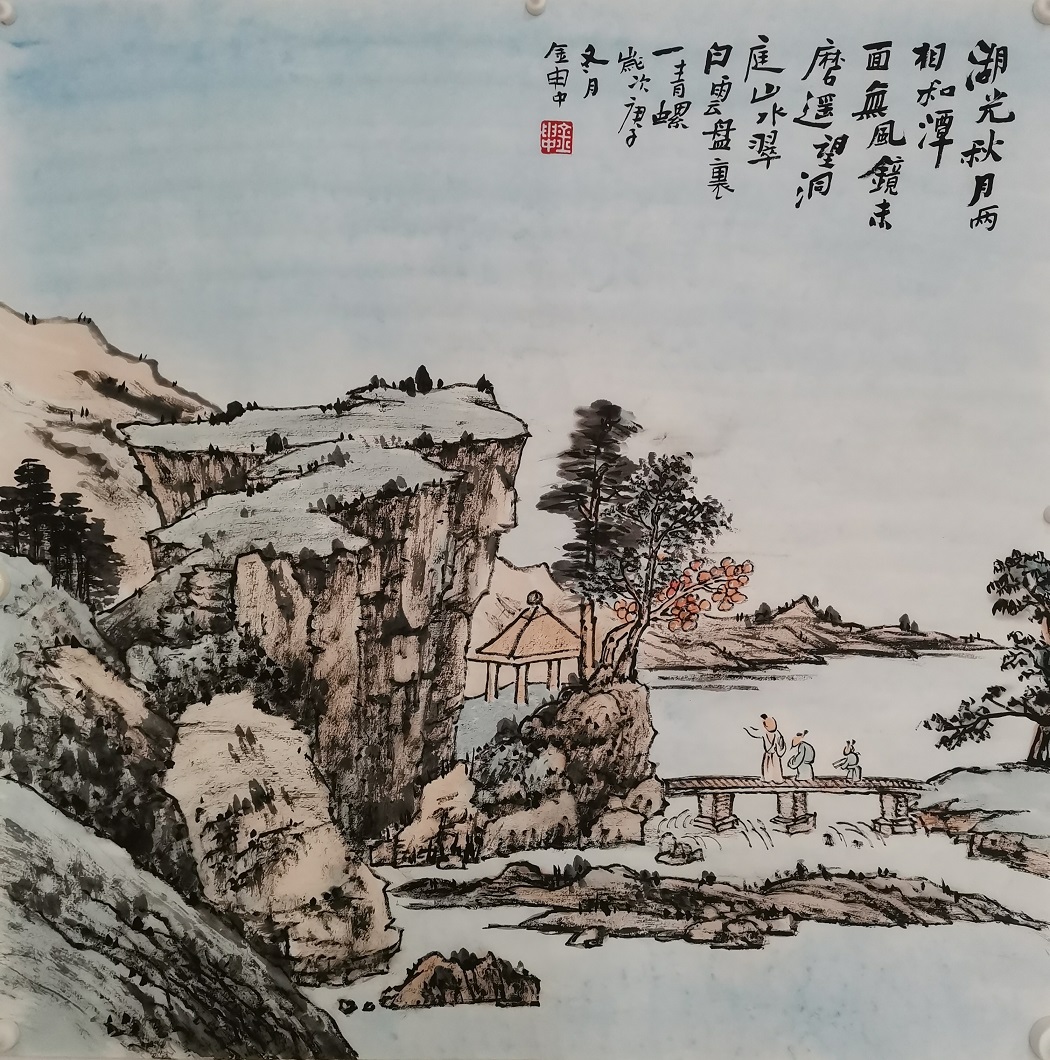 湖光秋月两
相和潭
面無風鏡未
磨遥望洞
庭山水翠
白雲盘裏
一青螺
歲次庚子
冬月
金申中